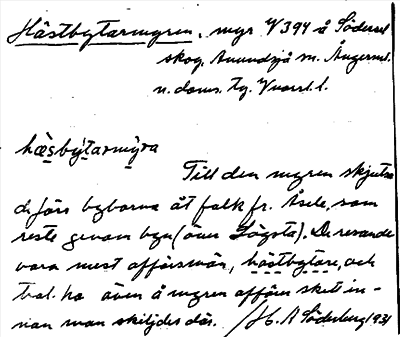 Hästbytarmyren, myr V 394 å Södersel
skog, Anundsjö sn. Ångerml.
n. doms. tg. Vnorrl. l.
hæ̀sby̆tarmỳra
Till den myren skjutsa
de förr byborna åt folk fr. Åsele, som
reste genom byn (över Sögsta). De resande
vara mest affärsmän, hästbytare, och
trol. ha även å myren affären skett in-
nan man skiljdes där. / H. A. Söderberg 1931